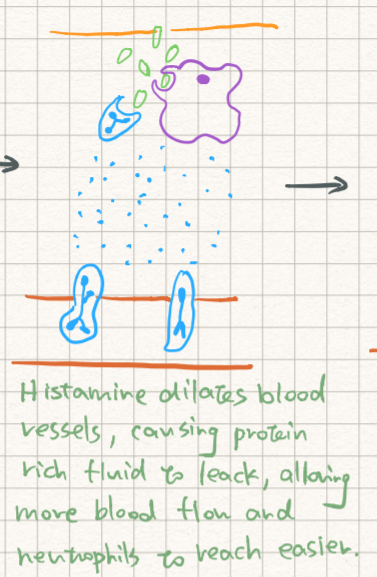 Histamine dilates blood
vessels, causing protein
rich fluid to leack, allowing
more blood flow and
neutrophils to reach easier.